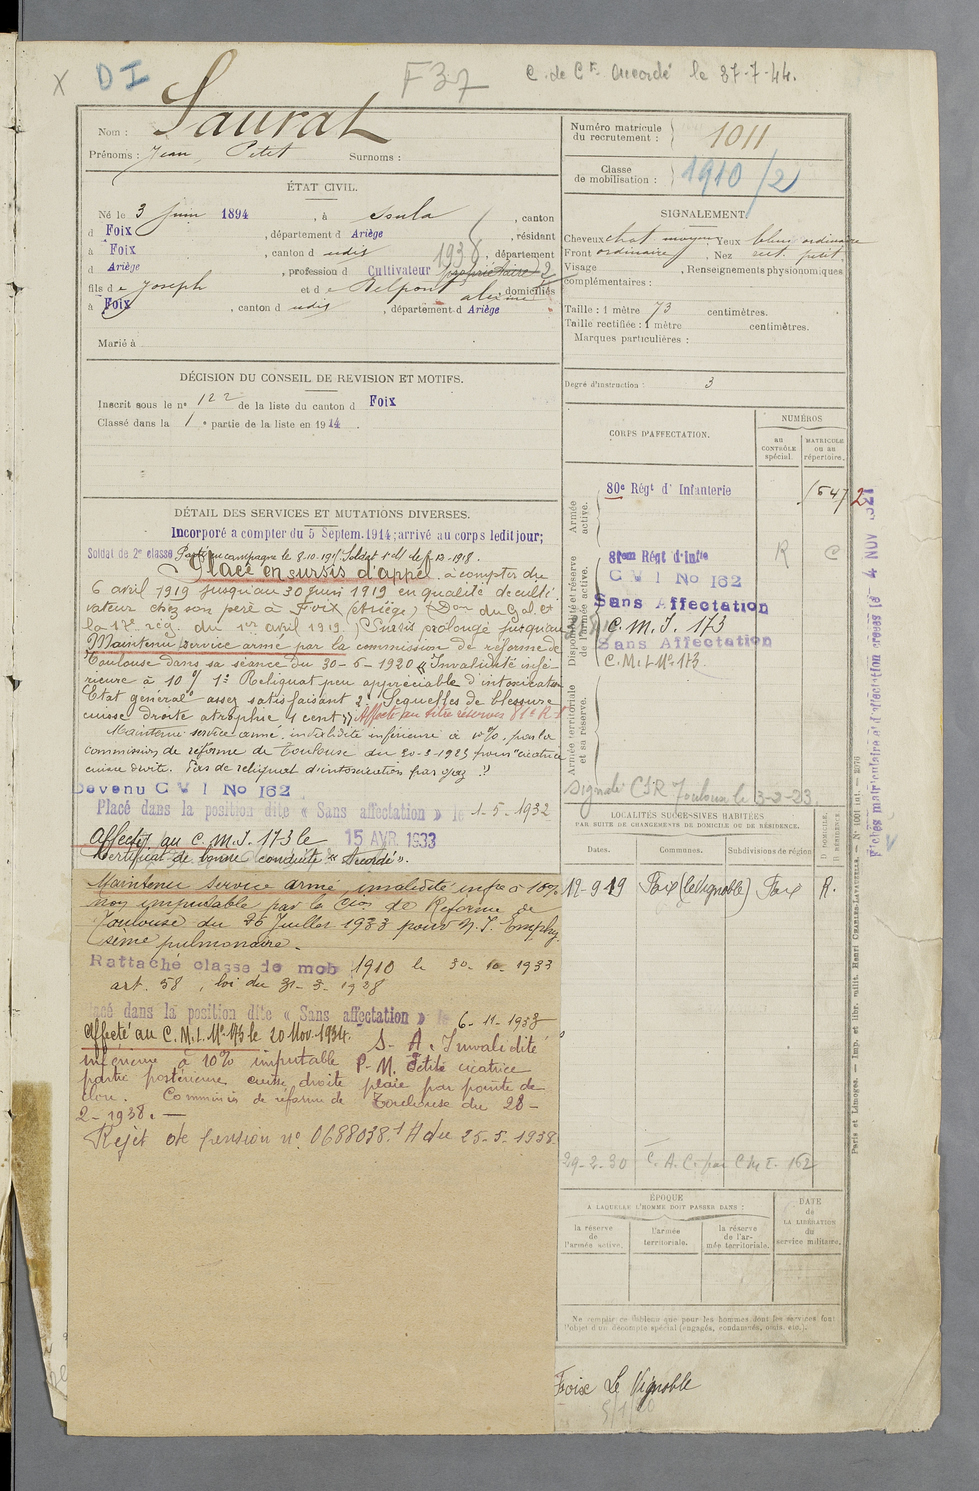 X DI F37 C. de Cte accordé le 37-7-44.
Nom : Saurat
Prénoms : Jean, Petit Surnoms :
ÉTAT CIVIL.
Né le 3 juin 1894, à Soula, canton
d Foix, département d Ariège, résidant
à Foix, canton d udit 193, département
d Ariège, profession d Cultivateur propriétaire 2
fils de Joseph et de Delpont, domiciliés
à Foix, canton d udit, département d Ariège
Marié à
DÉCISION DU CONSEIL DE REVISION ET MOTIFS.
Inscrit sous le n° 122 de la liste du canton d Foix
Classé dans la 1e partie de la liste en 1914.
DÉTAIL DES SERVICES ET MUTATIONS DIVERSES.
Incorporé a compter du 5 Septem. 1914; arrivé au corps ledit jour;
Soldat de 2e classe
Placé en sursis d'appel. à compter du
6 avril 1919 jusqu'au 30 juin 1919 en qualité de culti-
vateur chez son père à Foix (Ariège) Don du Gal. Ct
la 17e rég. du 1er avril 1919. Sursis prolongé jusqu'au
Maintenu service armé par la commission de réforme de
Toulouse dans sa séance du 30-6-1920 "Invalidité infé-
rieure à 10% 1° Reliquat peu appréciable d'intoxication
Etat général assez satisfaisant 2° Séquelles de blessure
cuisse droite atrophie 1 cent" Affecté
Maintenu service armé. invalidité inférieure à 10%. par la
commission de réforme de Toulouse du 20-3-1923 pour "cicatrice
cuisse droite. Pas de reliquat d'intoxication par gaz."
Devenu C M I No 162
Placé dans la position dite « Sans affectation » le 1-5-1932
Affecté au C. M. I. 173 le 15 AVR. 1933
Certificat de bonne conduite « Accordé ».
Maintenu service armé, invalidité infre à 10%
non imputable par la Cion de Réforme de
Toulouse du 26 Juillet 1933 pour N. I. Emphy-
sème pulmonaire.
Rattaché classe de mob 1910 le 30-10-1933
art. 58, loi du 31-3-1928
Placé dans la position dite « Sans affectation » le 6-11-1933
Affecté au C. M. I. No 173 le 20 Nov. 1934.
S. A. Invalidité
inférieure à 10% imputable P. M. Petite cicatrice
partie postérieure cuisse droite plaie par pointe de
clou. Commion de réforme de Toulouse du 28-
2-1938. —
Rejet de pension n° 0688038.1 A du 25-5-1938.
Numéro matricule du recrutement : 1011
Classe de mobilisation : 1910/2
SIGNALEMENT.
Cheveux chat moyen Yeux bleu ordinaire
Front ordinaire, Nez rect. petit
Visage , Renseignements physionomiques
complémentaires :
Taille : 1 mètre 73 centimètres.
Taille rectifiée : 1 mètre centimètres.
Marques particulières :
Degré d'instruction : 3
CORPS D'AFFECTATION.
NUMÉROS
AU CONTRÔLE spécial.
MATRICULE OU AU répertoire.
Armée active.
80e Régt d' Infanterie 1547
Disponibilité et réserve de l'armée active.
81em Régt d'Infie R C
C M I No 162
Sans Affectation
C. M. I. 173
Sans Affectation
C. M. I. No 173.
Armée territoriale et sa réserve.
Signalé CSR Toulouse le 3-2-23.
LOCALITÉS SUCCESSIVES HABITÉES
PAR SUITE DE CHANGEMENTS DE DOMICILE OU DE RÉSIDENCE.
Dates. Communes. Subdivisions de région D DOMICILE, R RÉSIDENCE.
12-9-19 Foix (le Vignoble) Foix R.
29-2-30 C. A. C. par C M I. 162
ÉPOQUE
A LAQUELLE L'HOMME DOIT PASSER DANS :
la réserve de l'armée active. l'armée territoriale. la réserve de l'armée territoriale.
DATE de LA LIBÉRATION du service militaire.
Ne remplir ce tableau que pour les hommes dont les services font
l'objet d'un décompte spécial (engagés, condamnés, omis, etc.).
Foix Le Vignoble
Fiches matriculaire et d'affectation créées le 4 NOV 1921
Paris et Limoges. — Imp. et libr. milit. Henri CHARLES-LAVAUZELLE.